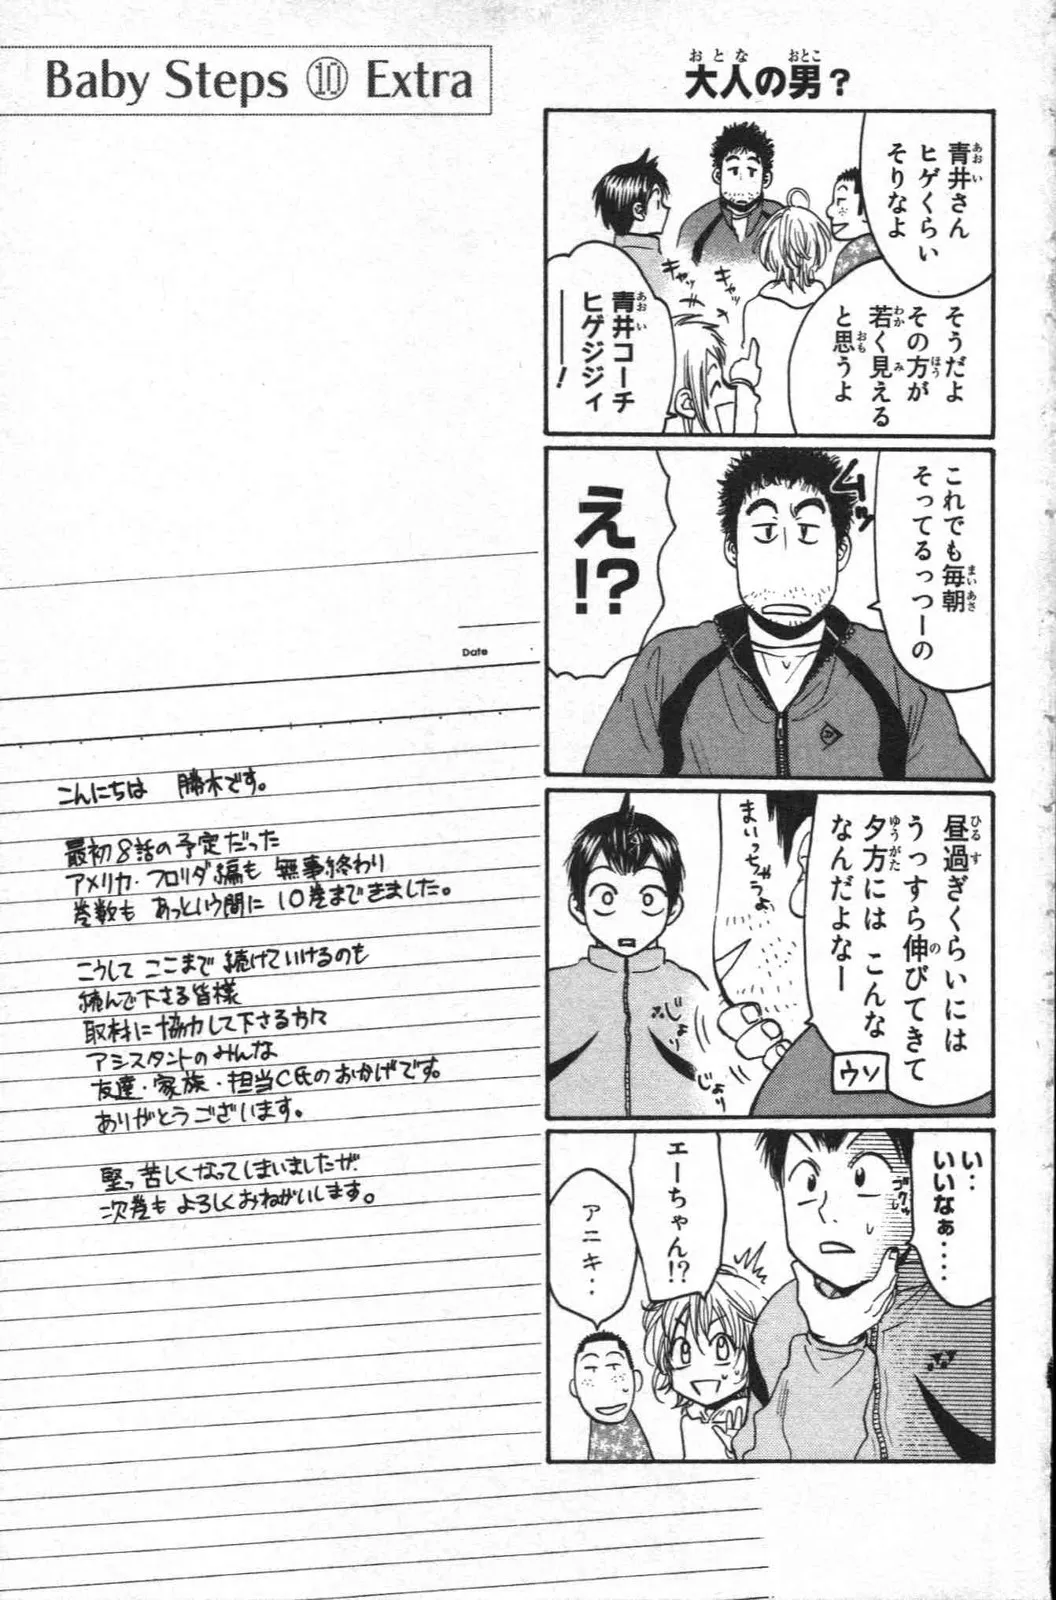 Baby Steps ⑩ Extra
大人の男？
おとな おとこ
青井さん
あおい
ヒゲくらい
そりなよ
そうだよ
その方が
ほう
若く見える
わか み
と思うよ
おも
キャッ
キャッ
青井コーチ
あおい
ヒゲジジィ
――！
これでも毎朝
まいあさ
そってるっつーの
ムッ
え!?
昼過ぎくらいには
ひるす
うっすら伸びてきて
の
夕方には こんな
ゆうがた
なんだよなー
ウソ
まいっちゃうよ
じょり
じょり
い‥
いいなぁ‥‥
ゴクッ
エーちゃん!?
アニキ‥
Date
こんにちは 勝木です。
最初8話の予定だった
アメリカ・フロリダ編も 無事終わり
巻数も あっという間に 10巻まできました。
こうして ここまで 続けていけるのも
読んで下さる皆様
取材に協力して下さる方々
アシスタントのみんな
友達・家族・担当C氏のおかげです。
ありがとうございます。
堅っ苦しくなってしまいましたが
次巻も よろしくおねがいします。